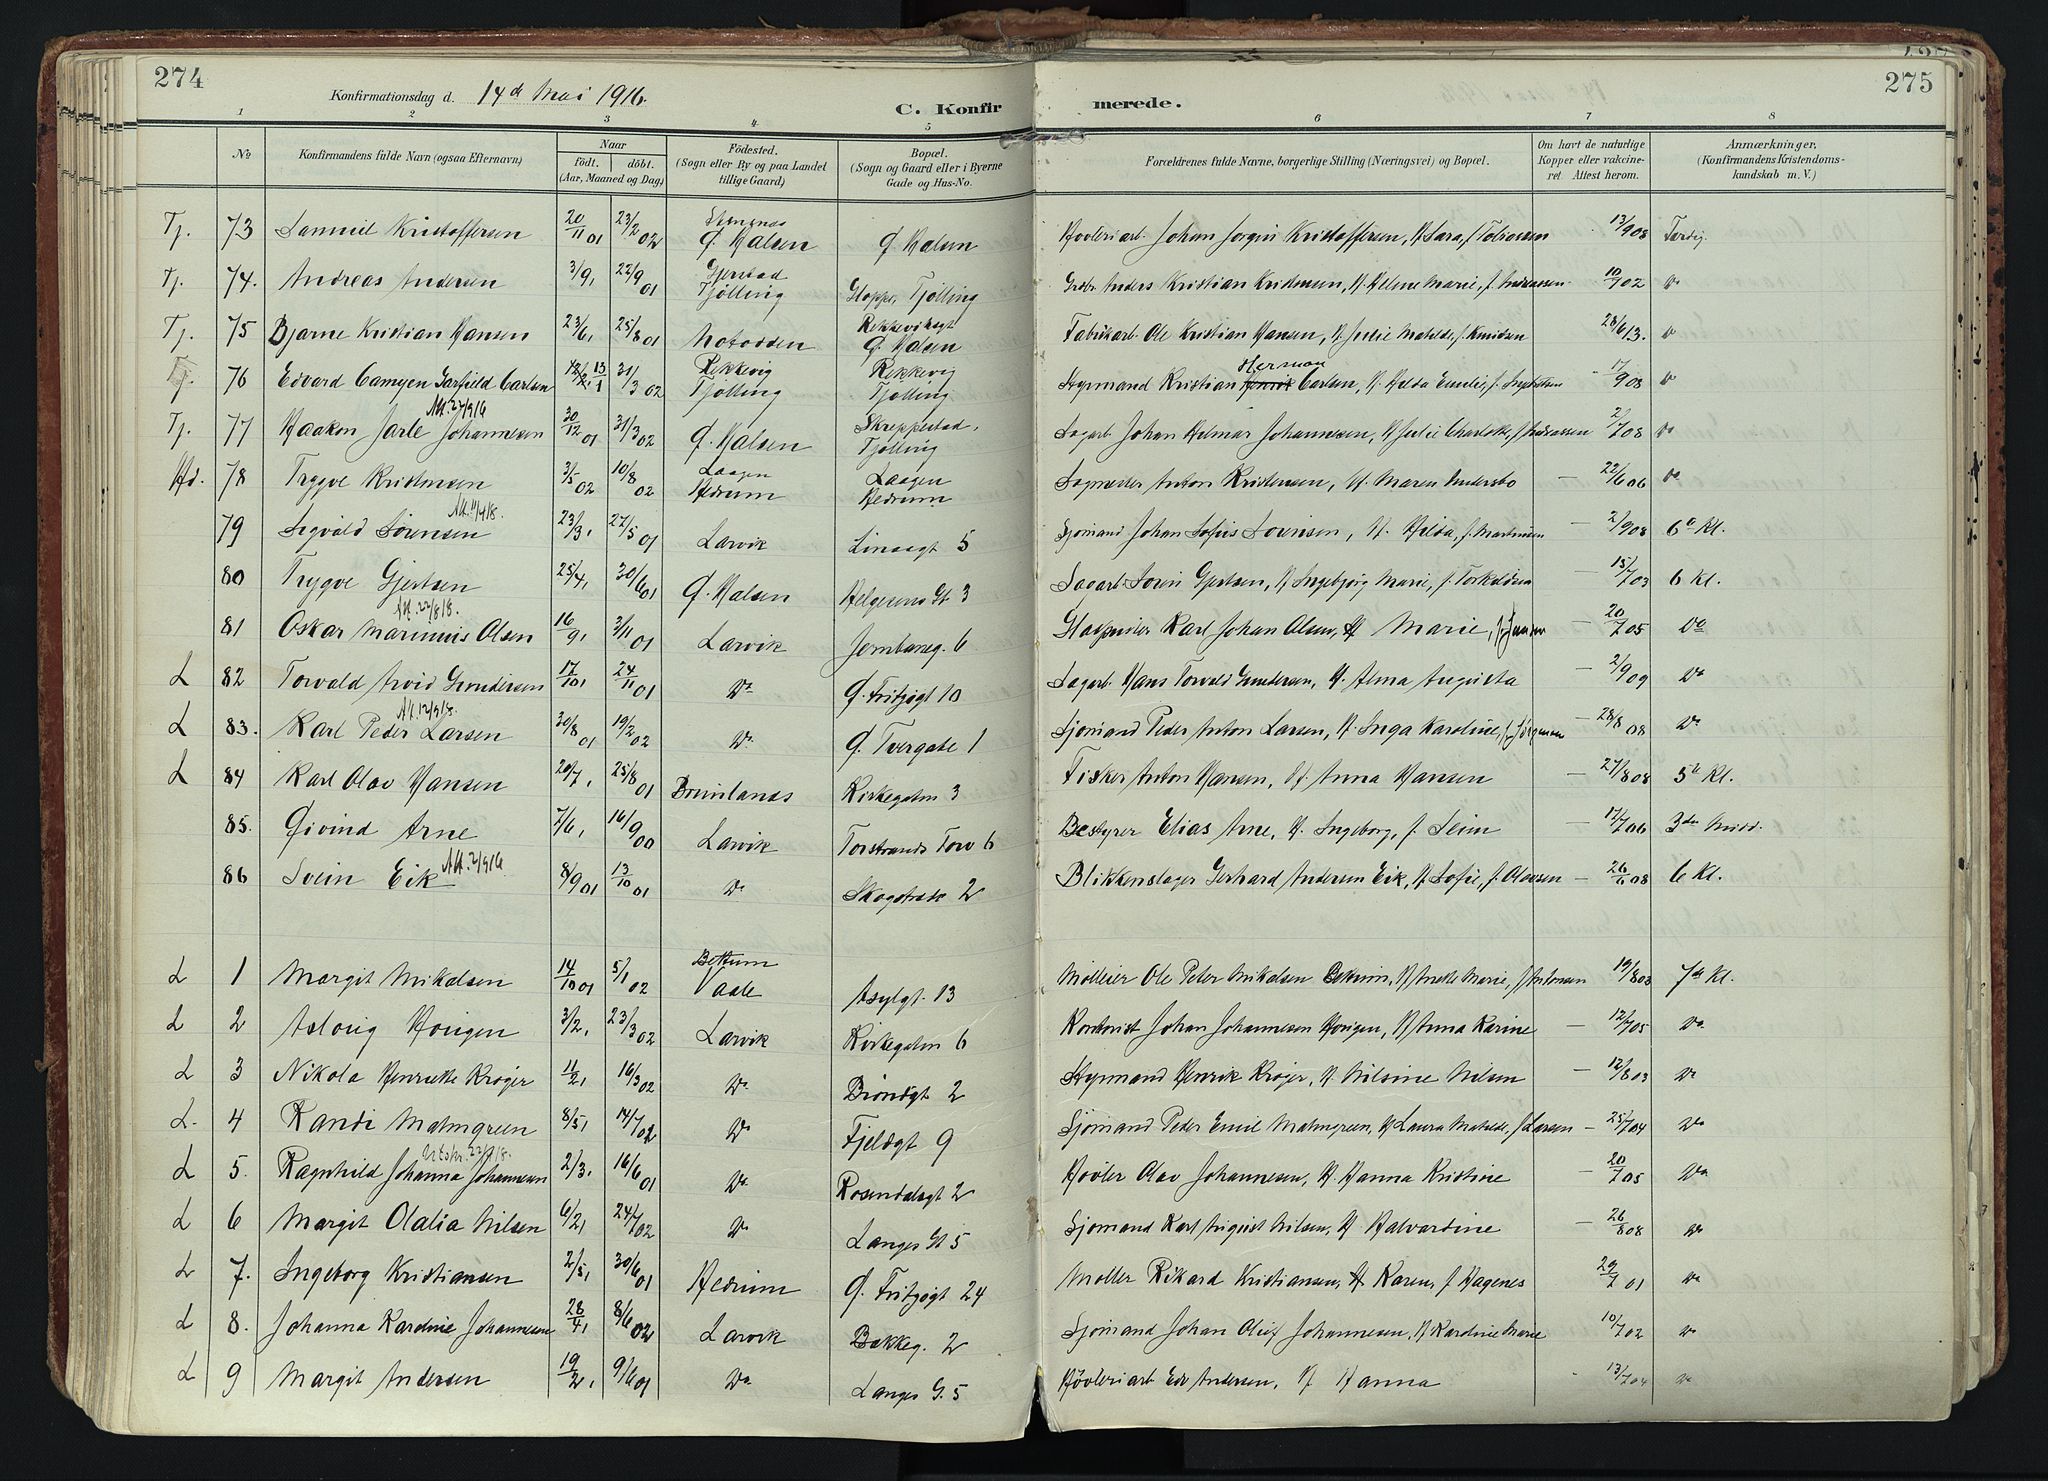 274
Konfirmationsdag d. 14de Mai 1916.
C. Konfirmerede.
275
1 2 3 4 5 6 7 8
No
Konfirmandens fulde Navn (ogsaa Efternavn)
Naar
født. døbt.
(Aar, Maaned og Dag)
Fødested.
(Sogn eller By og paa Landet tillige Gaard)
Bopæl.
(Sogn og Gaard eller i Byerne Gade og Hus-No.
Forældrenes fulde Navne, borgerlige Stilling (Næringsvei) og Bopæl.
Om havt de naturlige Kopper eller vakcineret. Attest herom.
Anmærkninger.
(Konfirmandens Kristendomskundskab m. V.)
Tj. 73 Samuel Kristoffersen 20/11 01 23/2 02 Ø. Halsen Ø. Halsen Høvleriarb. Johan Jørgen Kristoffersen, H. Sara, f. 13/9 08
Tj. 74. Andreas Andersen 3/9, 22/9 01 Gjerstad Tjølling Tjølling Anders Kristian Kristensen, H. Helene Marie, f. Andreassen 10/7 02 Do
Tj. 75 Bjarne Kristian Hansen 23/6, 25/8 01 Notodden Ø. Halsen Fabrikarb. Ole Kristian Hansen, H. Julie Matilde, f. Knudsen 28/6 13. Do
Tj. 76 Edvard Garfield Carlsen 31/3 02 Rekkevig Tjølling Rekkevig Tjølling Styrmand Kristian Herman Carlsen, H. Hilda Emilie, f. 17/9 08 Do
Tj. 77 Haakon Jarle Johannesen Att. 27/9 16 30/12 01 31/3 02 Ø. Halsen Skreppestad, Tjølling Sagarb. Johan Helmar Johannesen, H. Julie Charlotte, f. Andreassen 2/7 08 Do
Hd. 78 Trygve Kristensen 3/5 02 10/8 02 Laagen Hedrum Laagen Hedrum Sagmester Anton Kristensen, H. Maren Andersbo — 22/6 06 Do
79 Sigvald Sørensen Att. 11/4 18. 23/3, 27/5 01 Larvik Linaagt 5 Sjømand Johan Sofus Sørensen, H. Hilda, f. Martinsen — 2/9 08 6te Kl.
80 Trygve Gjertsen 25/4, 30/6 01 Ø. Halsen Helgesens Gt 3 Sagarb. Søren Gjertsen, H. Ingebjørg Marie, f. Torkeldsen — 15/7 03 6 Kl.
81 Oskar Marinius Olsen Att. 22/8 18. 16/9, 3/11 01 Larvik Jernbaneg. 6 Karl Johan Olsen, H. Marie, f. Jensen 20/7 05 Do
L 82 Torvald Arvid Gundersen 17/10, 24/11 01 Do Ø. Fritzøgt 10 Sagarb. Hans Torvald Gundersen, H. Alma Augusta — 2/9 09 Do
L 83. Karl Peder Larsen Att. 12/3 18. 30/8 01 19/2 02 Do Ø. Tvergate 1 Sjømand Peder Anton Larsen, H. Inga Karoline, f. Jørgensen — 28/8 08 Do
L 84 Karl Olav Hansen 20/7, 25/8 01 Brunlanes Kirkegaten 3 Fisker Anton Hansen, H. Anna Hansen — 27/8 08 5te Kl.
85. Øivind Arne 7/6, 16/9 00 Larvik Torstrands Torv 6 Bestyrer Elias Arne, H. Ingeborg, f. Seim 17/7 06 3die Midd.
86 Svein Eik Att. 2/9 16 8/9 01 13/10 01 Do Skogstrede 2 Blikkenslager Gerhard Andersen Eik, H. Sofie, f. Olavsen — 26/6 08 6 Kl.
L 1 Margit Mikalsen 14/10 01 5/1 02 Bettum Vaale Asylgt. 13 Ole Peter Mikalsen Bettum, H. Anette Marie, f. Antonsen 19/8 03 7de Kl.
L 2 Aslaug Horgen 3/2, 23/3 02 Larvik Kirkegaten 6 Kontorist Johan Johannesen Horgen, H. Anna Karine — 12/7 05 Do
L 3 Nikola Henriette Krøger 11/2, 16/3 02 Do Brøndgt 2 Styrmand Henrik Krøger, H. Nilsine Nilsen — 12/8 03 Do
L. 4 Randi Malmgreen 8/5, 14/7 02 Do Fjeldgt 9 Sjømand Peder Emil Malmgreen, H. Laura Matilde, f. Larsen — 25/7 04 Do
L 5. Ragnhild Johanna Johannesen Utskr. 22/1 18. 2/3, 16/6 01 Do Rosendalsgt 2 Høvler Olav Johannesen, H. Hanna Kristine — 20/7 05 Do
L 6 Margit Olalia Nilsen 6/2, 24/7 02 Do Langes Gt 5 Sjømand Karl August Nilsen, H. Halvardine — 26/8 08 Do
L 7. Ingeborg Kristiansen 2/5, 30/6 01 Hedrum Ø. Fritzøgt 24 Møller Rikard Kristiansen, H. Karen, f. Hagenes 29/7 01 Do
L 8. Johanna Karoline Johannesen 28/4, 8/6 02 Larvik Bakkeg. 2 Sjømand Johan Oluf Johannesen, H. Karoline Marie 10/7 02 Do
L 9 Margit Andersen 19/2, 9/6 01 Do Langes G. 5 Høvleriarb. Edv. Andersen, H. Hanna 13/7 04 Do